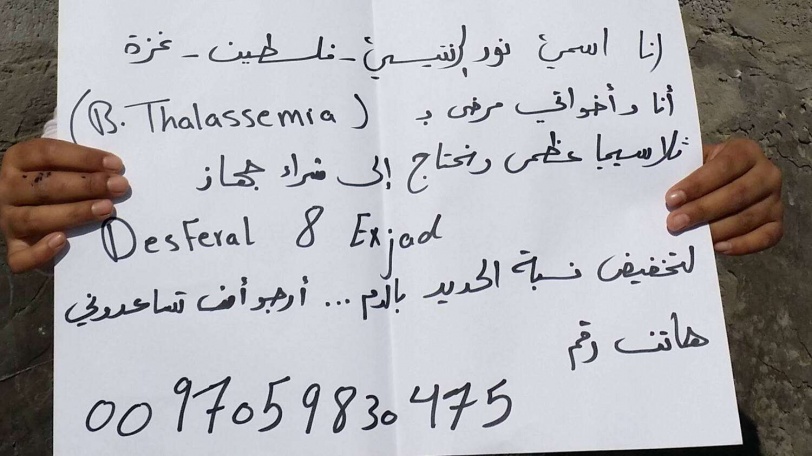 أنا اسمي نور النتيسي - فلسطين - غزة
أنا وأخواتي مرضى بـ (B. Thalassemia)
ثلاسيميا عظمى ونحتاج إلى شراء جهاز
Desferal & Exjad
لتخفيض نسبة الحديد بالدم ... أرجو أن تساعدوني
هاتف رقم
00 97059830475